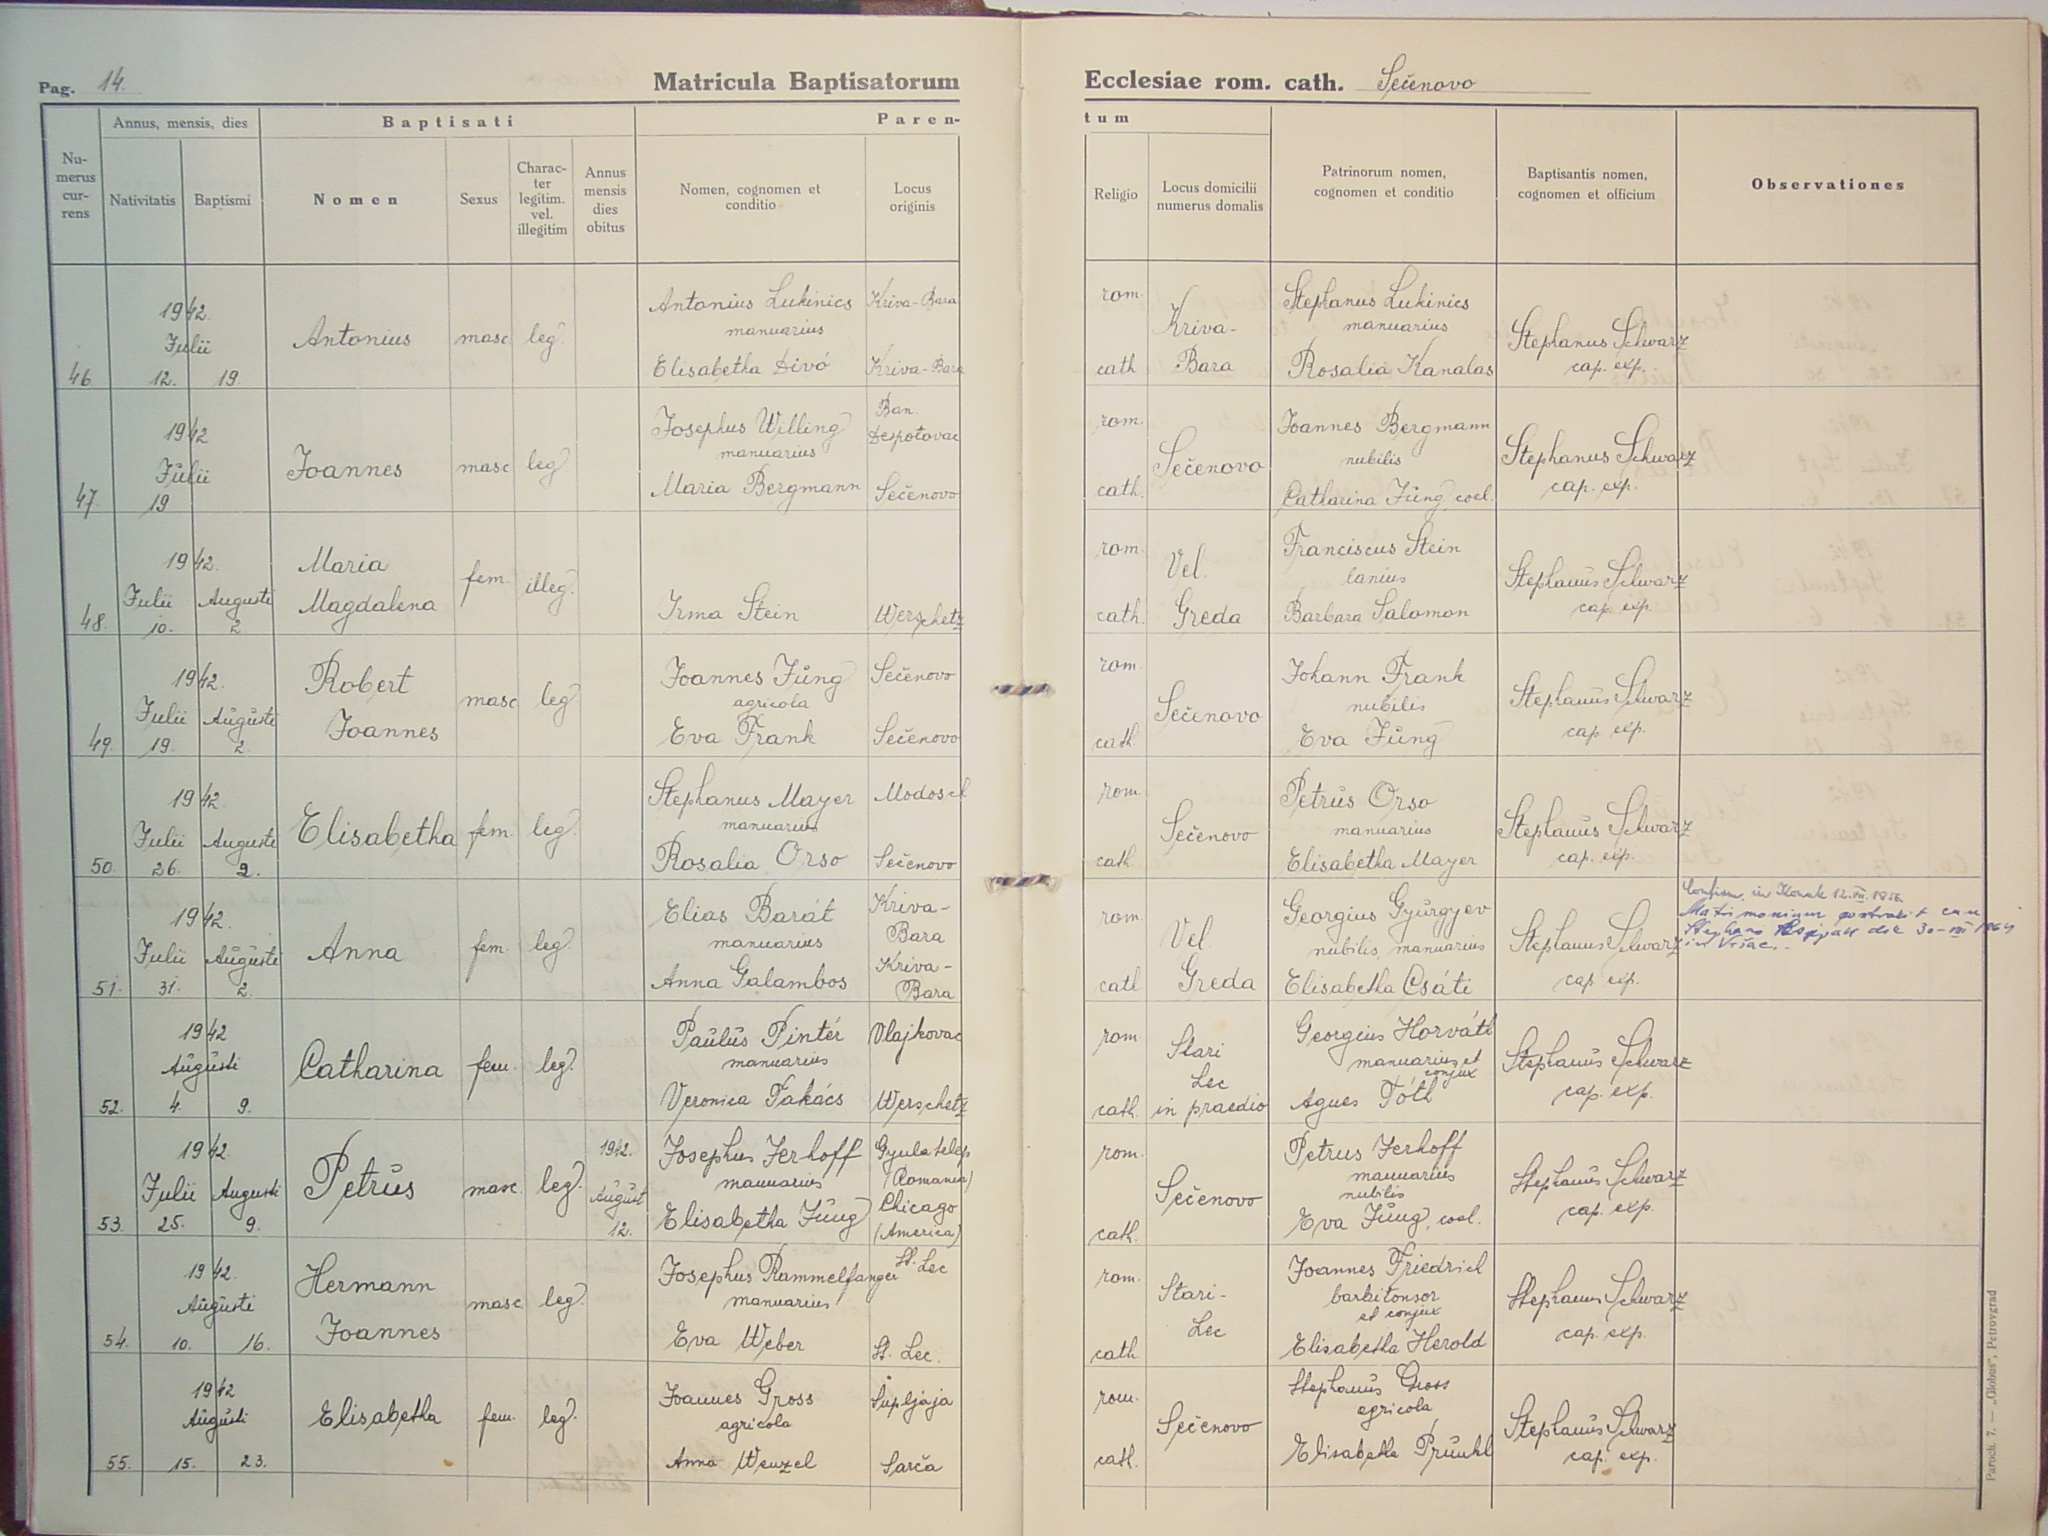 Pag. 14.
Matricula Baptisatorum
Ecclesiae rom. cath. Sečenovo
Numerus currens
Annus, mensis, dies
Nativitatis
Baptismi
Baptisati
Nomen
Sexus
Charac-
ter
legitim.
vel.
illegitim
Annus
mensis
dies
obitus
Paren-
tum
Nomen, cognomen et
conditio
Locus
originis
Religio
Locus domicilii
numerus domalis
Patrinorum nomen,
cognomen et conditio
Baptisantis nomen,
cognomen et officium
Observationes
46
1942.
Julii
12. 19.
Antonius
masc
leg.
Antonius Lukinics
manuarius
Elisabetha Divó
Kriva-Bara
Kriva-Bara
rom.
cath
Kriva-
Bara
Stephanus Lukinics
manuarius
Rosalia Kanalas
Stephanus Schwarz
cap. exp.
47.
1942
Julii
19
Joannes
masc
leg.
Josephus Willing
manuarius
Maria Bergmann
Ban.
Despotovac
Sečenovo
rom.
cath.
Sečenovo
Joannes Bergmann
nubilis
Catharina Jung, coel.
Stephanus Schwarz
cap. exp.
48.
1942.
Julii Augusti
10. 2
Maria
Magdalena
fem.
illeg.
Irma Stein
Werschetz
rom.
cath.
Vel.
Greda
Franciscus Stein
lanius
Barbara Salomon
Stephanus Schwarz
cap. exp
49.
1942.
Julii Augusti
19. 2.
Robert
Joannes
masc
leg.
Joannes Jung
agricola
Eva Frank
Sečenovo
Sečenovo
rom.
cath
Sečenovo
Johann Frank
nubilis
Eva Jung
Stephanus Schwarz
cap. exp.
50.
1942.
Julii Augusti
26. 9.
Elisabetha
fem.
leg.
Stephanus Mayer
manuarius
Rosalia Orso
Modosch
Sečenovo
rom.
cath
Sečenovo
Petrus Orso
manuarius
Elisabetha Mayer
Stephanus Schwarz
cap. exp.
51.
1942.
Julii Augusti
31. 2.
Anna
fem.
leg.
Elias Barát
manuarius
Anna Galambos
Kriva-
Bara
Kriva-
Bara
rom.
cath
Vel.
Greda
Georgius Gyurgyev
nubilis, manuarius
Elisabetha Csáti
Stephanus Schwarz
cap. exp.
Confirm. in Konak 12.
Matrimonium cum
Stephano die 30-
in Vršac.
52.
1942
Augusti
4. 9.
Catharina
fem.
leg.
Paulus Pintér
manuarius
Veronica Takács
Vlajkovac
Werschetz
rom.
cath.
Stari
Lec
in praedio
Georgius Horváth
manuarius et
conjux
Agnes Tóth
Stephanus Schwarz
cap. exp.
53.
1942.
Julii Augusti
25. 9.
Petrus
masc.
leg.
1942.
August
12.
Josephus Jerhoff
manuarius
Elisabetha Jung
Gyulatelep
(Romania)
Chicago
(America)
rom.
cath.
Sečenovo
Petrus Jerhoff
manuarius
nubilis
Eva Jung, coel.
Stephanus Schwarz
cap. exp.
54.
1942.
Augusti
10. 16.
Hermann
Joannes
masc.
leg.
Josephus Rammelfanger
manuarius
Eva Weber
St. Lec
St. Lec.
rom.
cath
Stari-
Lec
Joannes Friedrich
barbitonsor
et conjux
Elisabetha Herold
Stephanus Schwarz
cap. exp.
55.
1942
Augusti
15. 23.
Elisabetha
fem.
leg.
Joannes Gross
agricola
Anna Wenzel
Šupljaja
Sarča
rom.
cath.
Sečenovo
Stephanus Gross
agricola
Elisabetha Prunkl
Stephanus Schwarz
cap. exp.
Paroch. 7. — „Globus", Petrovgrad